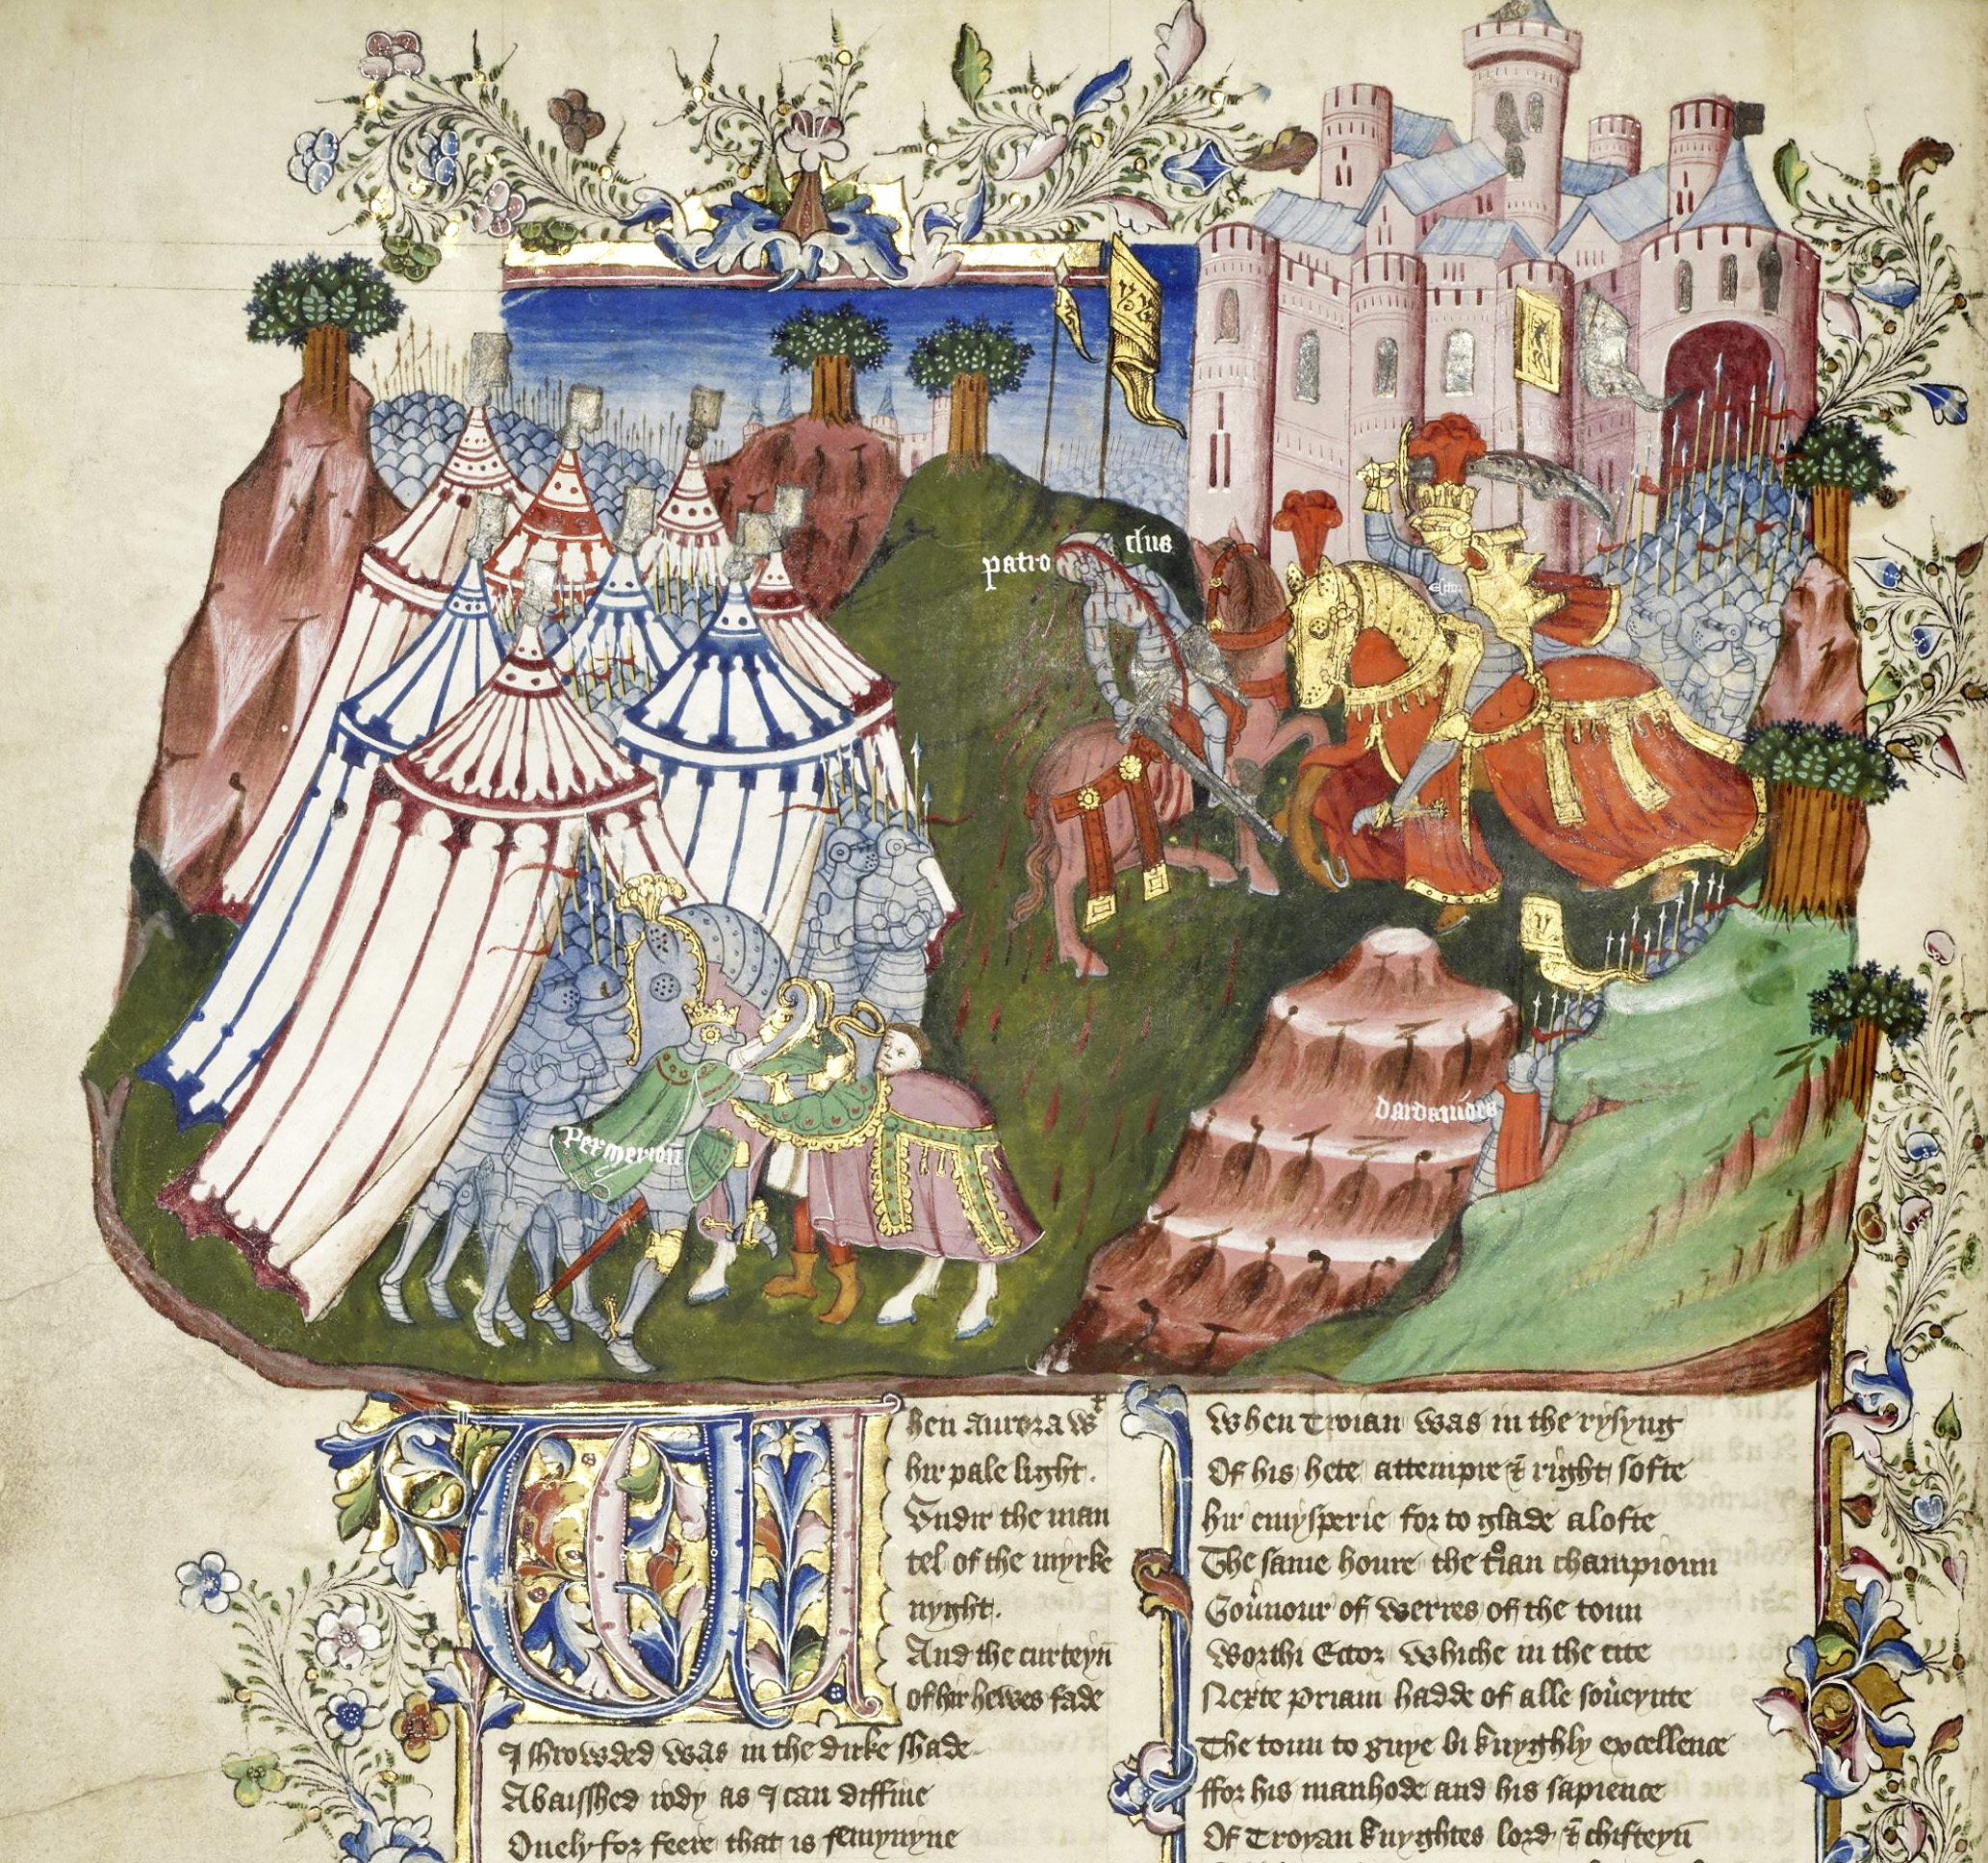 patro clus
Ector
dardanides
permerioun
When Aurora wt
hir pale light.
Undir the man
tel of the myrke
nyght.
And the curteyn
of hir hewes fade
I shrowded was in the dirke shade
Abaisshed rody as I can diffine
Onely for feere that is femynyne
When Troian was in the rysyng
Of his hete attempre & right softe
hir emysperie for to glade alofte
The same houre the troian championn
Gouernour of werres of the toun
Worthi Ector whiche in the cite
Nexte Priam hadde of alle souereynte
The toun to guye bi knyghly excellence
ffor his manhode and his sapience
Of Troyan knyghtes lord & chifteyn